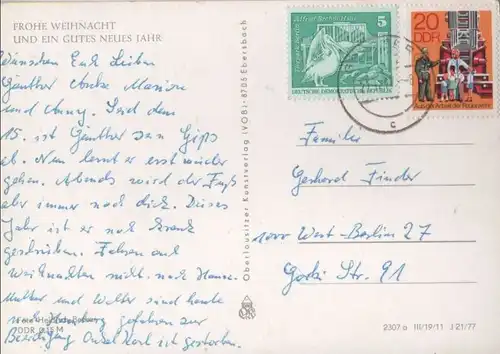 FROHE WEIHNACHT
UND EIN GUTES NEUES JAHR
Wünschen Euch Lieben
Günther Andre Marion
und Anny. Seid dem
15. ist Günther den Gips
ab. Nun lernt er erst wieder
gehen. Abends wird der Fuß
aber immer noch dick. Dieses
Jahr ist er noch krank
geschrieben. Fahren auch
Weihnachten nicht nach Hause.
Mutter und Walter sind heute
nach gefahren zur
Beerdigung Onkel Karl ist gestorben.
Foto:
DDR 0,15 M
Oberlausitzer Kunstverlag (VOB) · 8705 Ebersbach
5
DEUTSCHE DEMOKRATISCHE REPUBLIK
20
DDR
Aus der Arbeit der Feuerwehr
c
Familie
Gerhard Finder
1000 West-Berlin 27
Gorki Str. 91
2307 a III/19/11 J 21/77